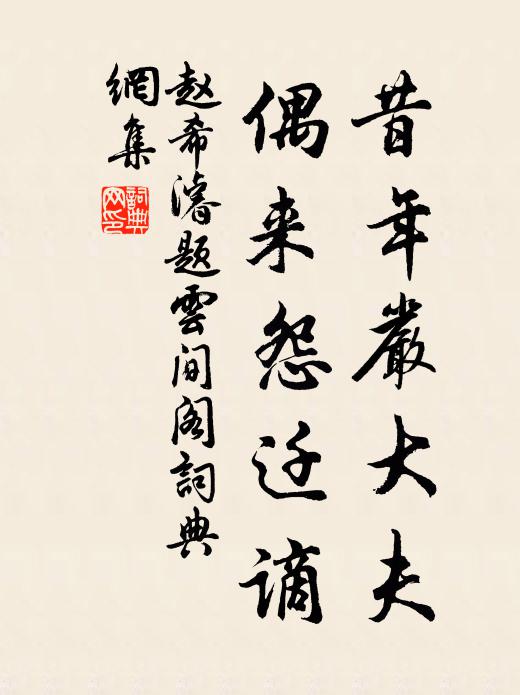 昔年嚴大夫
偶来怨迁谪
赵希濬题雲间阁詞典
網集
詞典
网印